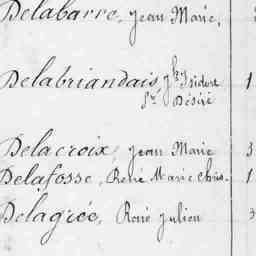 Delabarre, Jean Marie,
Delabriandais, Jh Isidore 1
Désiré
Delacroix, Jean Marie 3
Delafosse, René Marie Chris. 1
Delagrée, René Julien 3